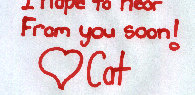 I hope to hear
From you soon!
♡ Cat